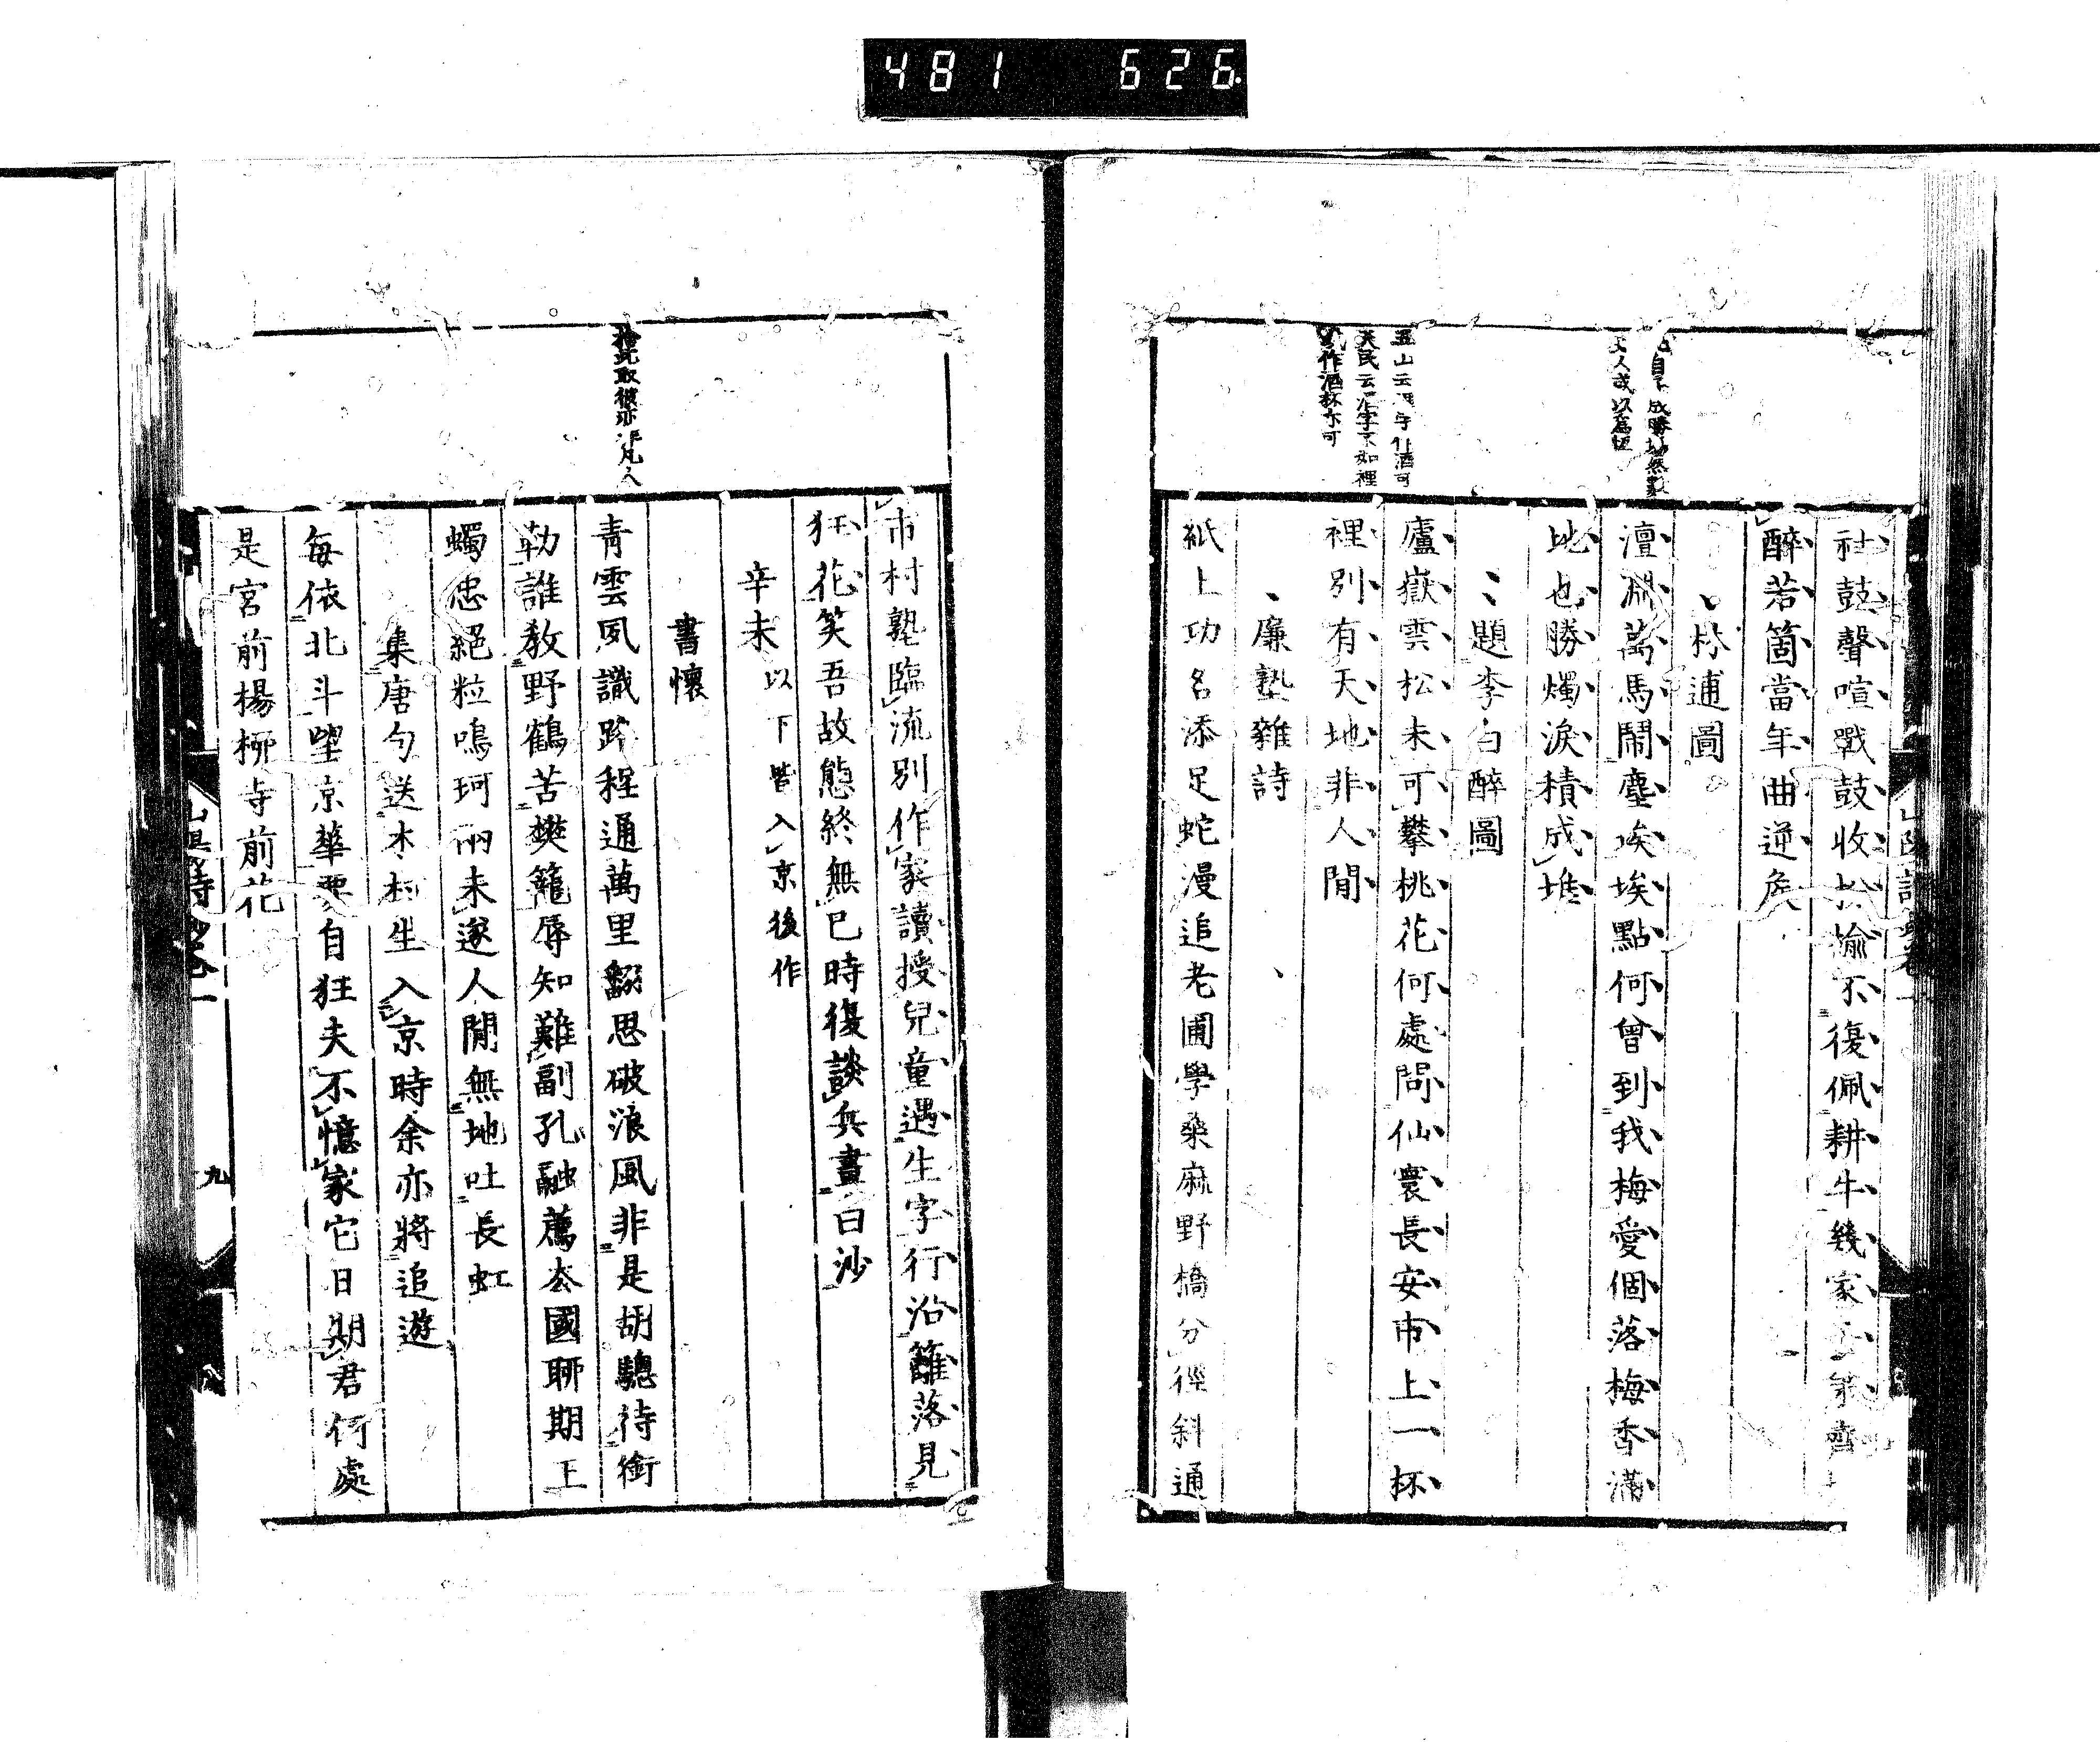 481 626
社鼓聲喧戰鼓收枌榆不復佩耕牛幾家
醉若箇當年曲逆矦
林逋圖
澶淵萬馬鬧塵埃埃點何曾到我梅愛個落梅香滿
地也勝燭淚積成堆
題李白醉圖
廬嶽雲松未可攀桃花何處問仙寰長安市上一杯
裡別有天地非人間
廉塾雜詩
紙上功名添足蛇漫追老圃學桑麻野橋分徑斜通
市村塾臨流別作家讀授兒童遇生字行沿籬落見
狂花笑吾故態終無已時復談兵畫白沙
辛未 以下皆入京後作
書懷
青雲夙識路程通萬里翻思破浪風非是胡驄待銜
勒誰教野鶴苦樊籠辱知難副孔融薦去國聊期王
蠋忠絕粒鳴珂兩未遂人間無地吐長虹
集唐句送木村生入京時余亦將追遊
每依北斗望京華要自狂夫不憶家它日期君何處
是宮前楊柳寺前花
五山云 字作酒可
天民云 字不如裡
作酒杯亦可
捨此取彼亦非凡人
九